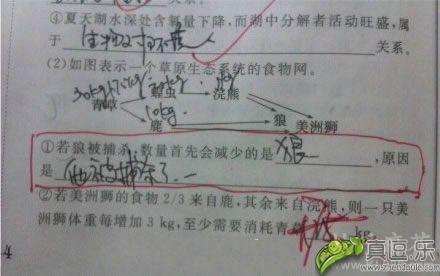 ④夏天湖水深处含氧量下降,而湖中分解者活动旺盛,属
于 生物及 关系。
(2)如图表示一个草原生态系统的食物网。
青草 浣熊
10kg
鹿 狼 美洲狮
①若狼被捕杀,数量首先会减少的是 狼 ,原因
是 他被捕杀了.
②若美洲狮的食物 2/3 来自鹿,其余来自浣熊,则一只美
洲狮体重每增加 3 kg,至少需要消耗青草 kg。
4
真逗乐
www.zhendoule.com